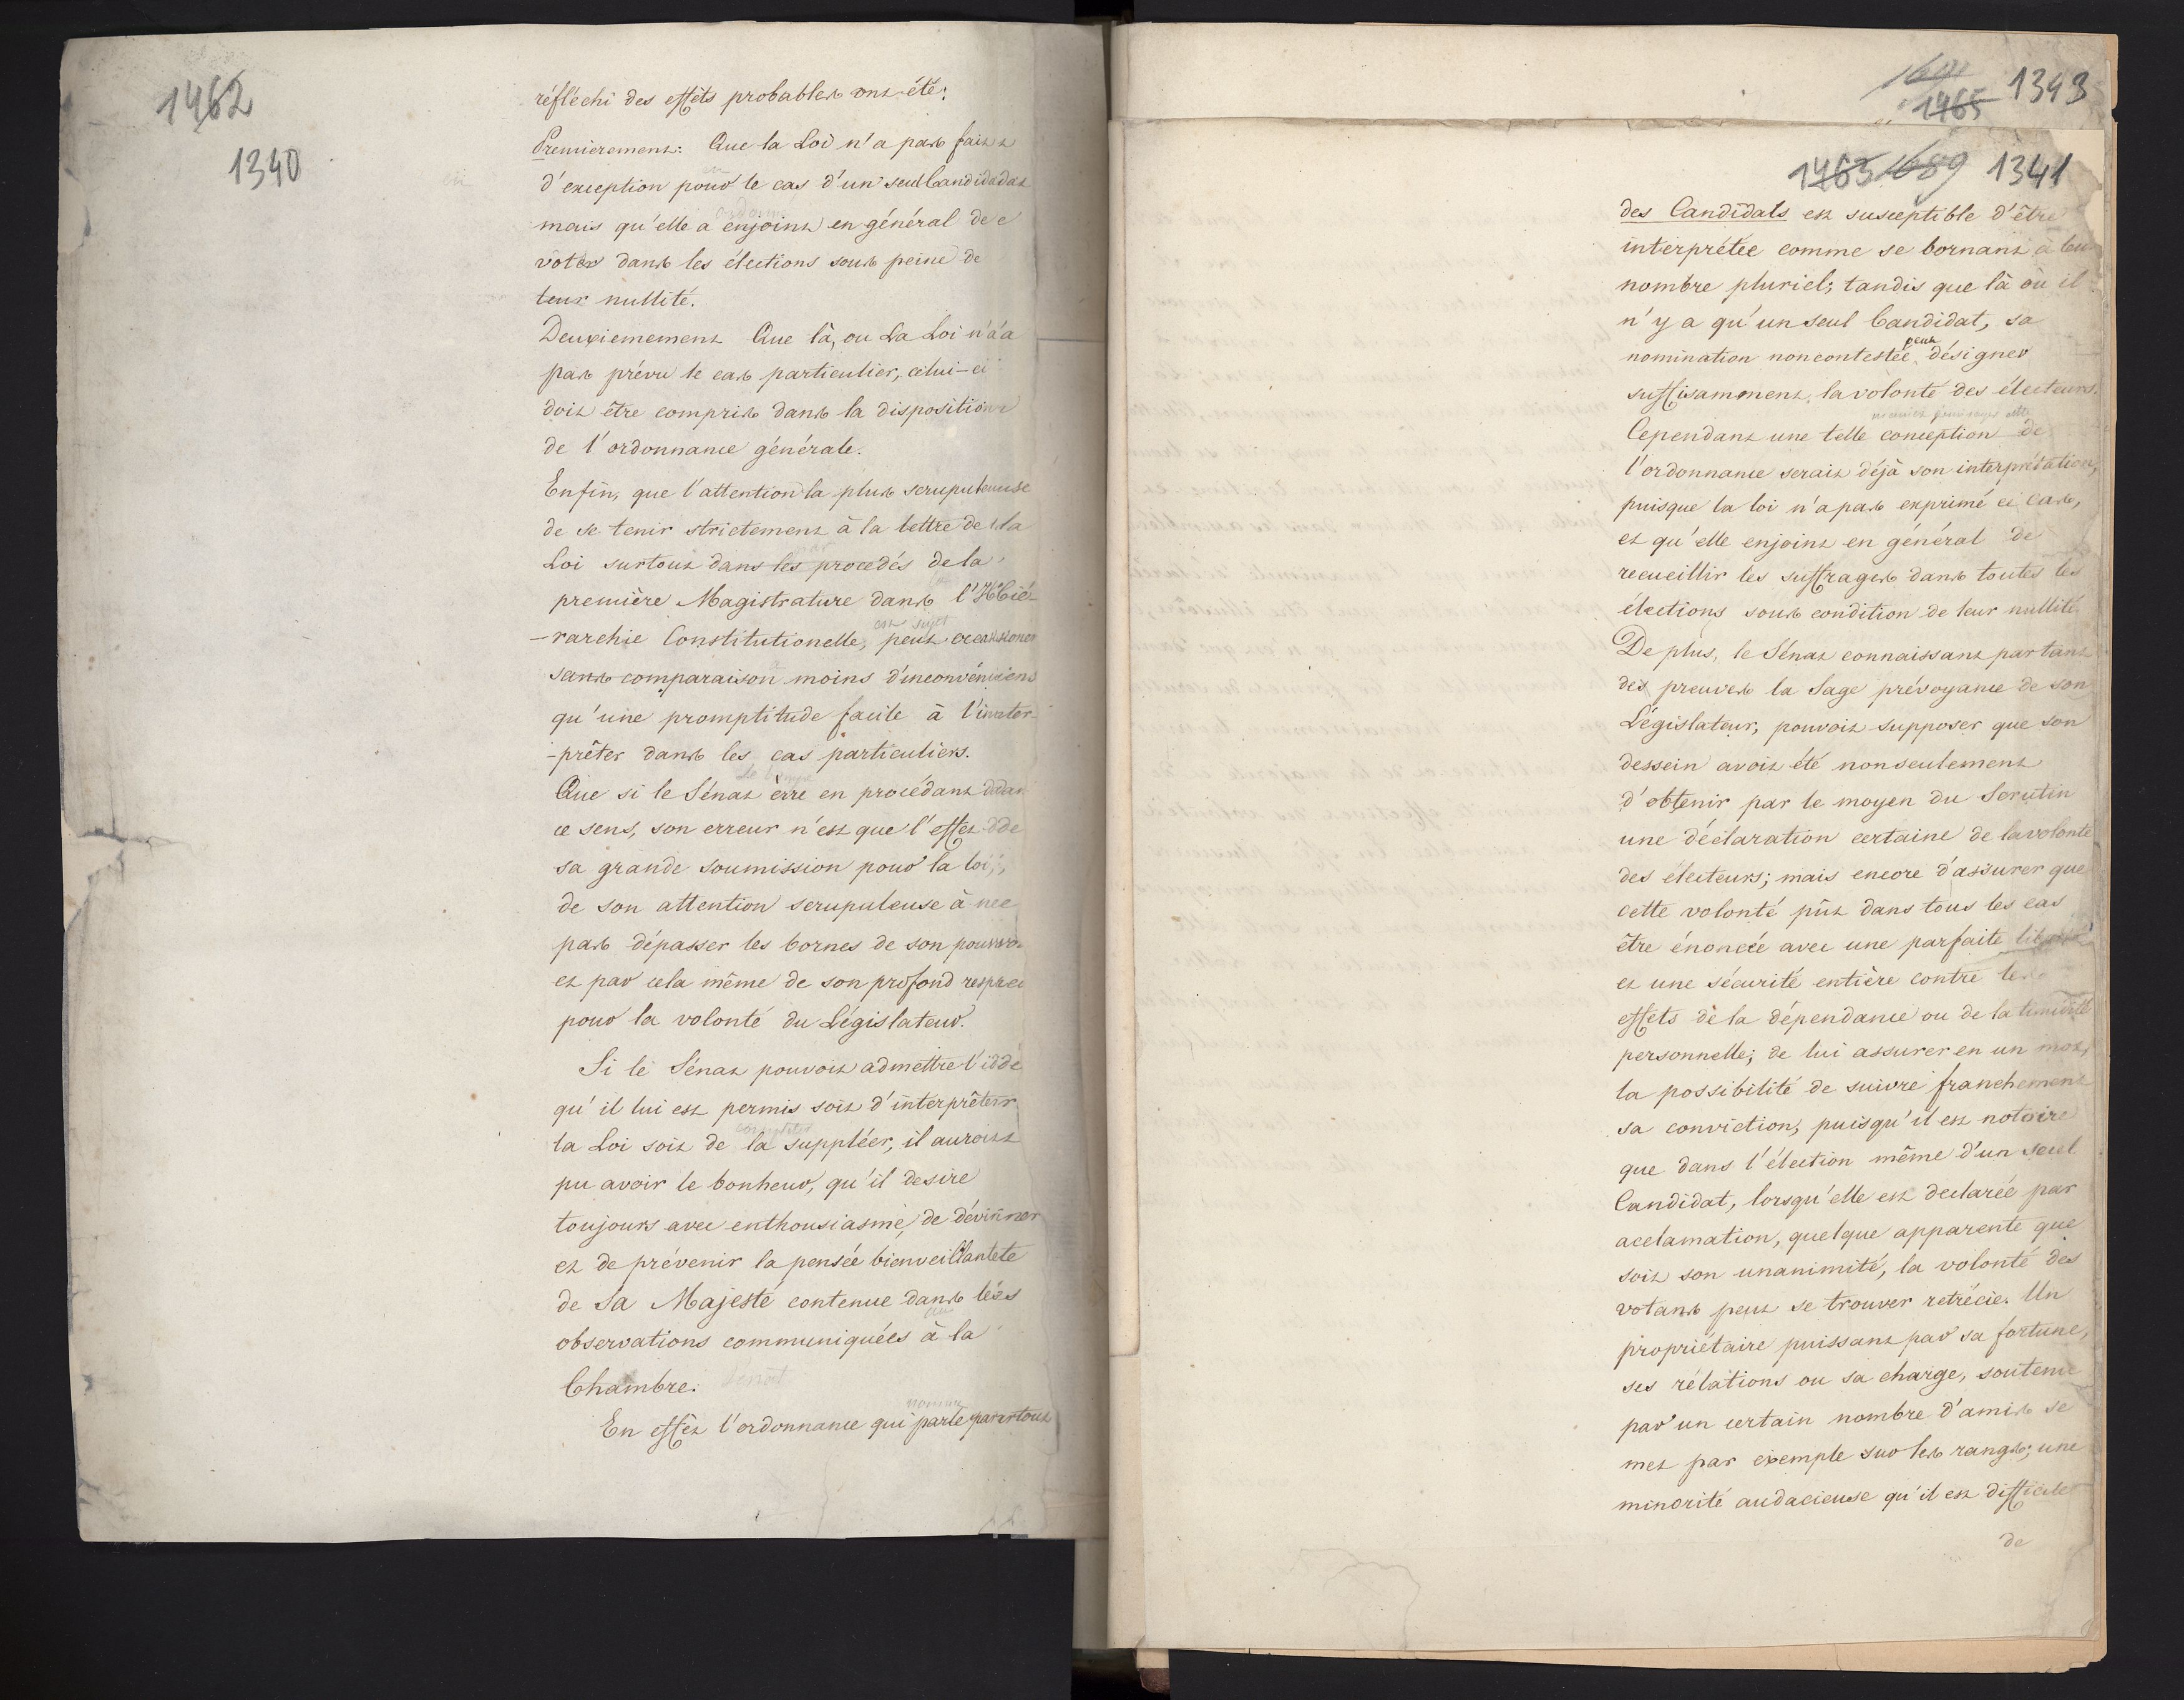 1462
1340
réfléchi des effets probables ont été:
Premierement: Que la Loi n'a pas fait
d'exception pour le cas d'un seul Candidat
mais qu'elle a enjoint en général de
voter dans les élections sous peine de
leur nullité.
Deuxiemement Que là, ou La Loi n'a
pas prévu le cas particulier, celui-ci
doit être compris dans la disposition
de l'ordonnance générale.
Enfin, que l'attention la plus scrupuleuse
de se tenir strictement à la lettre de la
Loi surtout dans les procedés de la
première Magistrature dans l'Hié-
-rarchie Constitutionelle, peut occassioner
sans comparaison moins d'inconvéniens
qu'une promptitude facile à l'inter-
-prêter dans les cas particuliers.
se trompe
Que si le Sénat erre en procédant dans
ce sens, son erreur n'est que l'effet de
sa grande soumission pour la loi,
de son attention scrupuleuse à ne
pas dépasser les bornes de son pouvoi
et par cela même de son profond respec
pour la volonté du Législateur.
Si le Sénat pouvoit admettre l'idé
qu'il lui est permis soit d'interprêter
la Loi soit de la suppléer, il auroit
pu avoir le bonheur, qu'il desire
toujours avec enthousiasme, de déviner
et de prévenir la pensée bienveillante
de Sa Majesté contenue dans les
observations communiquées à la
Chambre. Senat
En effet l'ordonnance qui parle partout
1465 1343
1463 1689 1341
des Candidats est susceptible d'être
interprétée comme se bornant à leu
nombre pluriel; tandis que là où il
n'y a qu'un seul Candidat, sa
peut
nomination non contestée désigner
suffisamment la volonté des électeurs.
Cependant une telle conception de
l'ordonnance serait déjà son interprétation,
puisque la loi n'a pas exprimé ce cas,
et qu'elle enjoint en général de
recueillir les suffrages dans toutes les
élections sous condition de leur nullité
De plus, le Sénat connaissant par tant
des preuves la Sage prévoyance de son
Législateur, pouvoit supposer que son
dessein avoit été non seulement
d'obtenir par le moyen du Scrutin
une déclaration certaine de la volonté
des électeurs; mais encore d'assurer que
cette volonté pût dans tous les cas
être énoncée avec une parfaite liberté
et une sécurité entière contre les
effets de la dépendance ou de la timidité
personnelle; de lui assurer en un mot,
la possibilité de suivre franchement
sa conviction, puisqu'il est notoire
que dans l'élection même d'un seul
Candidat, lorsqu'elle est declarée par
acclamation, quelque apparente que
soit son unanimité, la volonté des
votans peut se trouver retrécie. Un
propriétaire puissant par sa fortune,
ses rélations ou sa charge, soutenu
par un certain nombre d'amis se
met par exemple sur les rangs; une
minorité audacieuse qu'il est difficile
de